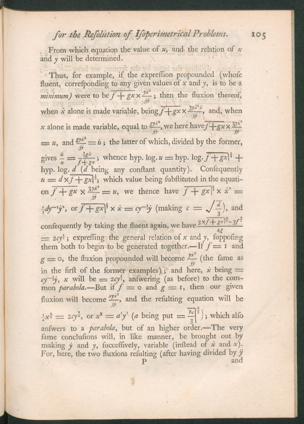 for the Resolution of Isoperimetrical Problems. 105
From which equation the value of u, and the relation of x
and y will be determined.
Thus, for example, if the expression propounded (whose
fluent, corresponding to any given values of x and y, is to be a
minimum) were to be
; then the fluxion thereof,
when ẋ alone is made variable, being
and, when
x alone is made variable, equal to
we have here
= u, and
= u̇ ; the latter of which, divided by the former,
gives
; whence hyp. log. u = hyp. log.
+
hyp. log. d (d being any constant quantity). Consequently
; which value being substituted in the equati-
on
= u, we thence have
or
(making
and
consequently by taking the fluent again, we have
; expressing the general relation of x and y, supposing
them both to begin to be generated together.—If f = 1 and
g = 0, the fluxion propounded will become
(the same as
in the first of the former examples); and here, ẋ being =
x will be =
answering (as before) to the com-
mon parabola.—But if f = 0 and g = 1, then our given
fluxion will become
, and the resulting equation will be
or
(a being put =
; which also
answers to a parabola, but of an higher order.—The very
same conclusions will, in like manner, be brought out by
making ẏ and y, successively, variable (instead of ẋ and x).
For, here, the two fluxions resulting (after having divided by ẏ
P and